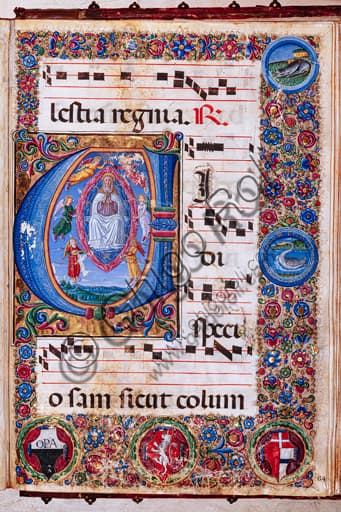 lestia regnia. R.
I
di
speci
o sam sicut colum
OPA
64